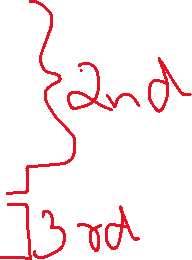 2nd
3rd